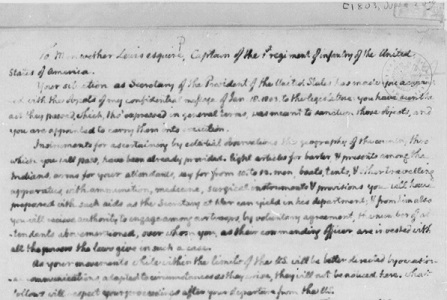 To Meriwether Lewis esquire, Captain of the 1st regiment of infantry of the United
States of America.
Your situation as Secretary of the President of the United States has made you acquainted
with the objects of my confidential message of Jan. 18. 1803. to the legislature. you have seen the
act they passed, which, tho' expressed in general terms, was meant to sanction those objects, and
you are appointed to carry them into execution.
Instruments for ascertaining by celestial observations the geography of the country thro'
which you will pass, have been already provided. light articles for barter & presents among the
Indians, arms for your attendants, say for from 10 to 12. men, boats, tents, & other travelling
apparatus with ammunition, medicine, surgical instruments & provisions you will have
prepared with such aids as the Secretary at War can yield in his department; & from him also
you will recieve authority to engage among our troops, by voluntary agreement, the number of at-
tendants abovementioned, over whom you, as their commanding officer are invested with
all the powers the laws give in such a case.
As your movements while within the limits of the US. will be better directed by occasion-
al communications adapted to circumstances as they arise, they will not be noticed here. what
follows will respect your proceedings after your departure from the